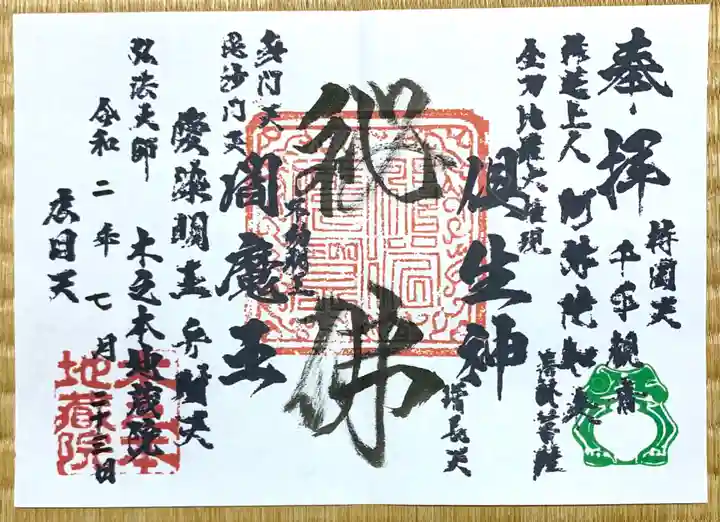 奉拝
持国天
千手観音
祚蓮上人
阿弥陀如来
龍樹菩薩
金刀比羅大権現
倶生神
増長天
佛
不動明王
閻魔王
多門天
毘沙門天
愛染明王
弁財天
弘法大師
木之本地蔵院
令和二年七月二十三日
広目天
木之本
地蔵院